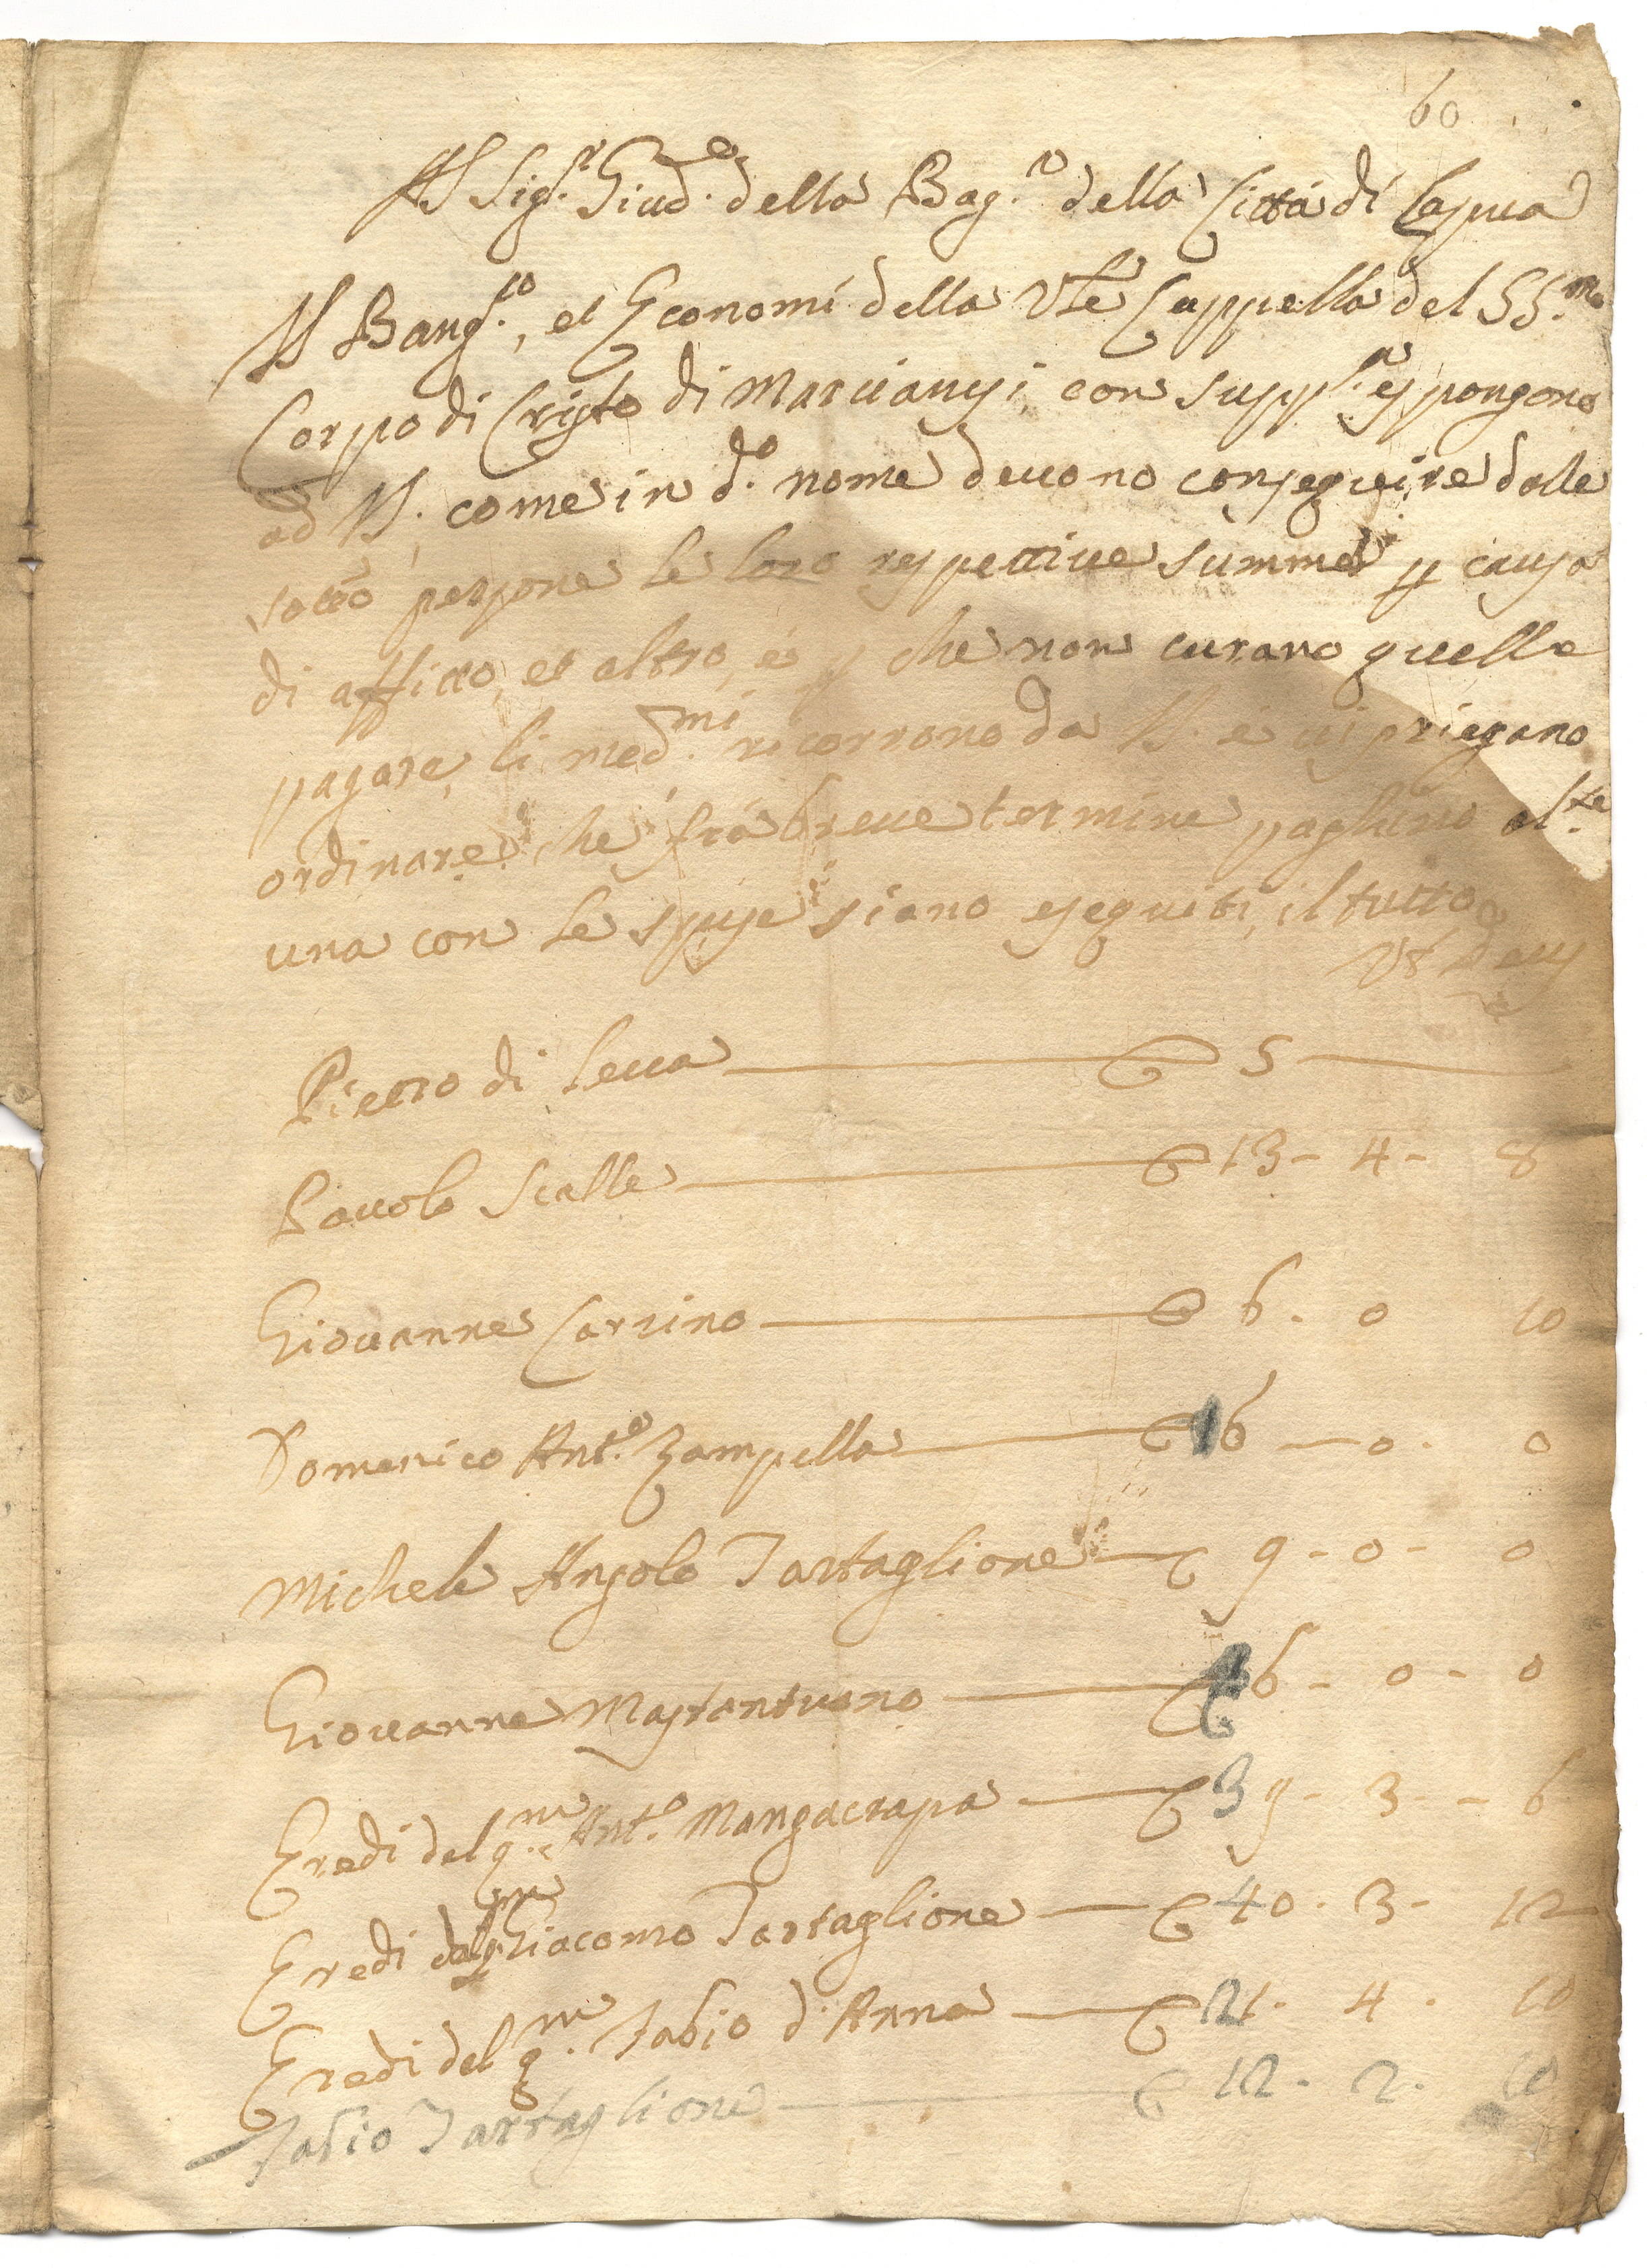 60
Al Sig.r Giud.e della Bag.a della Città di Capua
Il Bang.co, et Economi della Vle Cappella del SS.mo
Corpo di Cristo di Marcianisi con suppl.a espongono
ad VS. come in d.o nome deuono conseguire dalle
sotto persone le loro respettiue summe p causa
di affitto, et altro, e p che non curano quelle
pagare, li med.mi ricorrono da VS. e la priegano
ordinare che frà breue termine paghino al.te
una con le spese siano esequiti, il tutto
Ut Deus
Pietro di Lecca 5
Pauolo Scalle 13 - 4 - 8
Giouanne Carrino 6 - 0 10
Domenico Ant.o Zampella 16 - 0 - 0
Michele Angolo Tartaglione 9 - 0 - 0
Giouanne Mastantuono 6 - 0 - 0
Eredi del q.m Ant.o Mangacrapa 39 - 3 - 6
Eredi del q.m Giacomo Tartaglione 40 - 3 - 12
Eredi del q.m Fabio d'Anna 21 - 4 - 10
Fabio Tartaglione 12 - 2 - 10